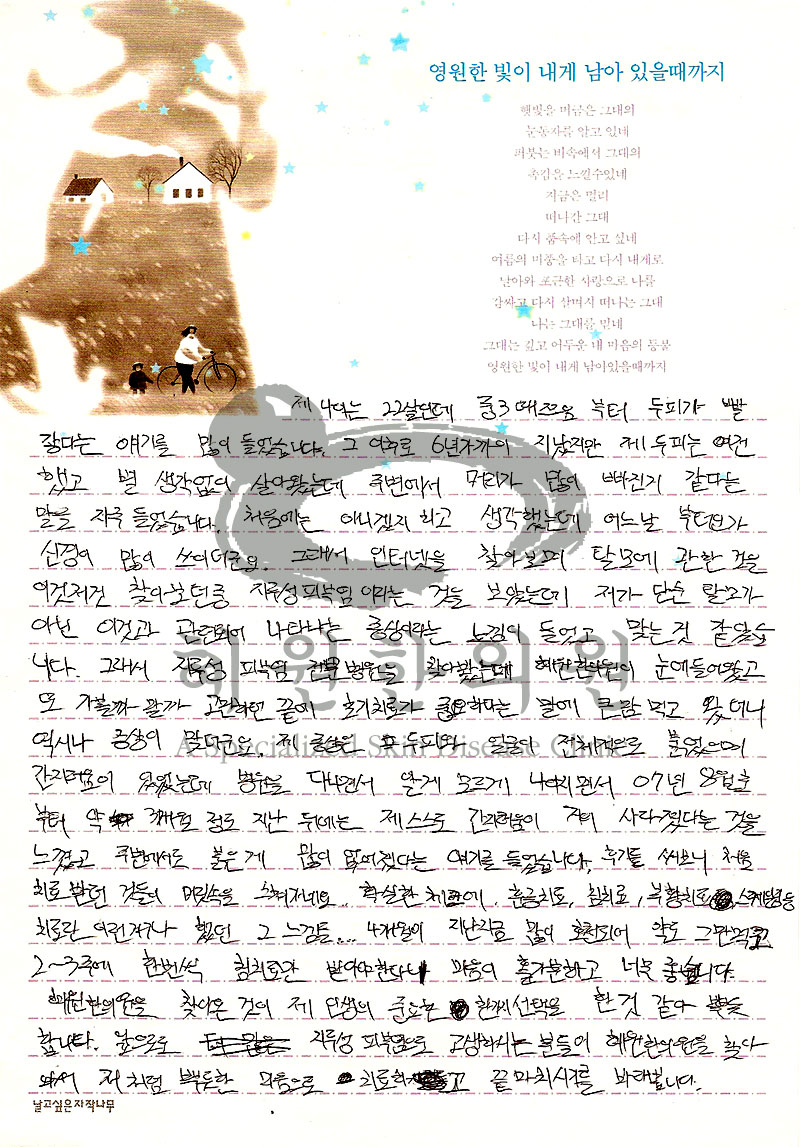 영원한 빛이 내게 남아 있을때까지
햇빛을 머금은 그대의
눈동자를 알고 있네
퍼붓는 비속에서 그대의
촉감을 느낄수있네
지금은 멀리
떠나간 그대
다시 품속에 안고 싶네
여름의 미풍을 타고 다시 내게로
날아와 포근한 사랑으로 나를
감싸고 다시 살며시 떠나는 그대
나는 그대를 믿네
그대는 깊고 어두운 내 마음의 등불
영원한 빛이 내게 남아있을때까지
제 나이는 22살인데 중3때쯤 부터 두피가 빨
갛다는 얘기를 많이 들었습니다. 그 이후로 6년가까이 지났지만 제 두피는 여전
했고 별 생각없이 살아왔는데 주변에서 머리가 많이 빠진거 같다는
말을 자주 들었습니다. 처음에는 아니겠지 하고 생각했는데 어느날 부터인가
신경이 많이 쓰이더군요. 그래서 인터넷을 찾아보며 탈모에 관한 것을
이것저것 찾아보던중 지루성피부염 이라는 것을 보았는데 저가 단순 탈모가
아닌 이것과 관련되어 나타나는 증상이라는 느낌이 들었고 맞는것 같았습
니다. 그래서 지루성 피부염 전문병원을 찾아봤는데 혜원한의원이 눈에들어왔고
또 가볼까 말까 고민하던 끝에 초기치료가 중요하다는 말에 큰맘 먹고 왔더니
역시나 증상이 맞더군요. 제 증상은 두피와 얼굴이 전체적으로 붉었으며
간지러움이 있었는데 병원을 다니면서 알게 모르게 나아지면서 07년 8월초
부터 약 3개월 정도 지난 뒤에는 제 스스로 간지러움이 거의 사라졌다는 것을
느꼈고 주변에서도 붉은게 많이 없어졌다는 얘기를 들었습니다. 후기를 써보니 처음
치료 받던 것들이 머릿속을 스쳐지네요. 확실한 치료에, 침치료, 부항치료 스케일링등
치료란 이런거구나 했던 그 느낌들... 4개월이 지난지금 많이 호전되어 약도 그만먹고
2~3주에 한번씩 침치료만 받아야한다니 마음이 홀가분하고 너무 좋습니다.
혜원한의원을 찾아온 것이 제 인생의 중요한 한가지선택을 한것 같아 뿌듯
합니다. 앞으로도 지루성 피부염으로 고생하시는 분들이 혜원한의원을 찾아
와서 저처럼 뿌듯한 마음으로 치료하고 끝마치시기를 바래봅니다.
날고싶은자작나무
혜원한의원
A Specialized Skin Disease Clinic